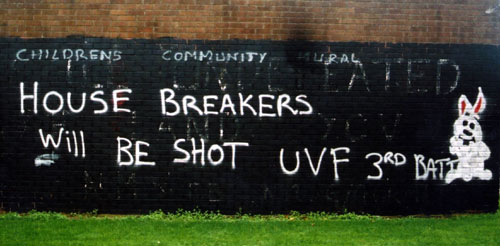 CHILDRENS COMMUNITY MURAL
HOUSE BREAKERS
Will BE SHOT UVF 3RD BATT